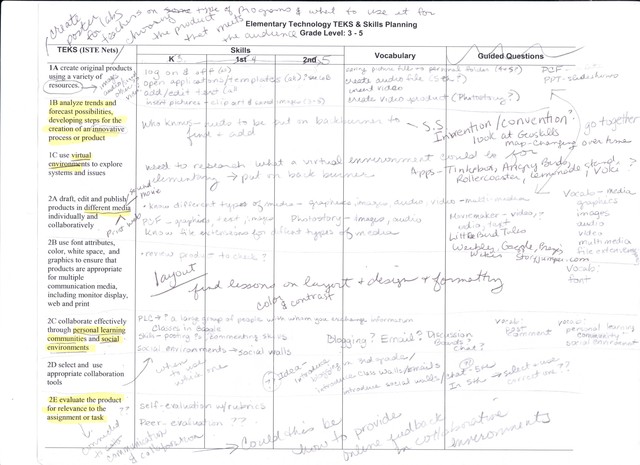 create poster for labs
teachers on some type of programs & what to use it for
choosing the product that meets the audience
Elementary Technology TEKS & Skills Planning
Grade Level: 3 - 5
TEKS (ISTE Nets)
Skills
K 3
1st 4
2nd 5
Vocabulary
Guided Questions
1A create original products using a variety of resources.
log on & off (all)
open applications/templates (all)
add/edit text (all)
insert pictures - clip art
create audio file (5th?)
insert video
create video product (Photostory?)
PCF -
PPT - slideshows
1B analyze trends and forecast possibilities, developing steps for the creation of an innovative process or product
Who knows - needs to be put on back burner to find & add
S.S
Invention/convention?
look at Geoskills
map-changing over time
go together
1C use virtual environments to explore systems and issues
need to research what a virtual environment could be for elementary → put on back burner
Apps - Tinkerbox, Angry Birds,
Rollercoaster, Lemonade, Voki
2A draft, edit and publish products in different media individually and collaboratively
sound
movie
print
web
know different types of media - graphics, images, audio, video - multi-audio
PCF - graphics, text, image
Photostory - images, audio
know file extensions for different types of media
Moviemaker - video, audio, text
Little Bird Tales
Weebly, Google,
Storyjumper.com
Vocab - media
graphics
images
audio
video
multimedia
file extensions
2B use font attributes, color, white space, and graphics to ensure that products are appropriate for multiple communication media, including monitor display, web and print
review product to check?
layout
find lessons on layout & design & formatting
color & contrast
Vocab:
font
2C collaborate effectively through personal learning communities and social environments
PLC = a large group of people with whom you exchange information
Classes in Google
Skill - posting & commenting skills
Social environments → social walls
Blogging? Email? Discussion Boards? Chat?
Vocab:
post
comment
vocab:
personal learning community
social environment
2D select and use appropriate collaboration tools
when to use which one
Idea - introduce blogging in 3rd grade/
introduce class walls/emails
introduce social walls/chat - 5th
In 5th → select & use correct one??
2E evaluate the product for relevance to the assignment or task
??
self-evaluation w/rubrics
Peer-evaluation ??
connected to communication & collaboration
Could this be how to provide online feedback in collaborative environments